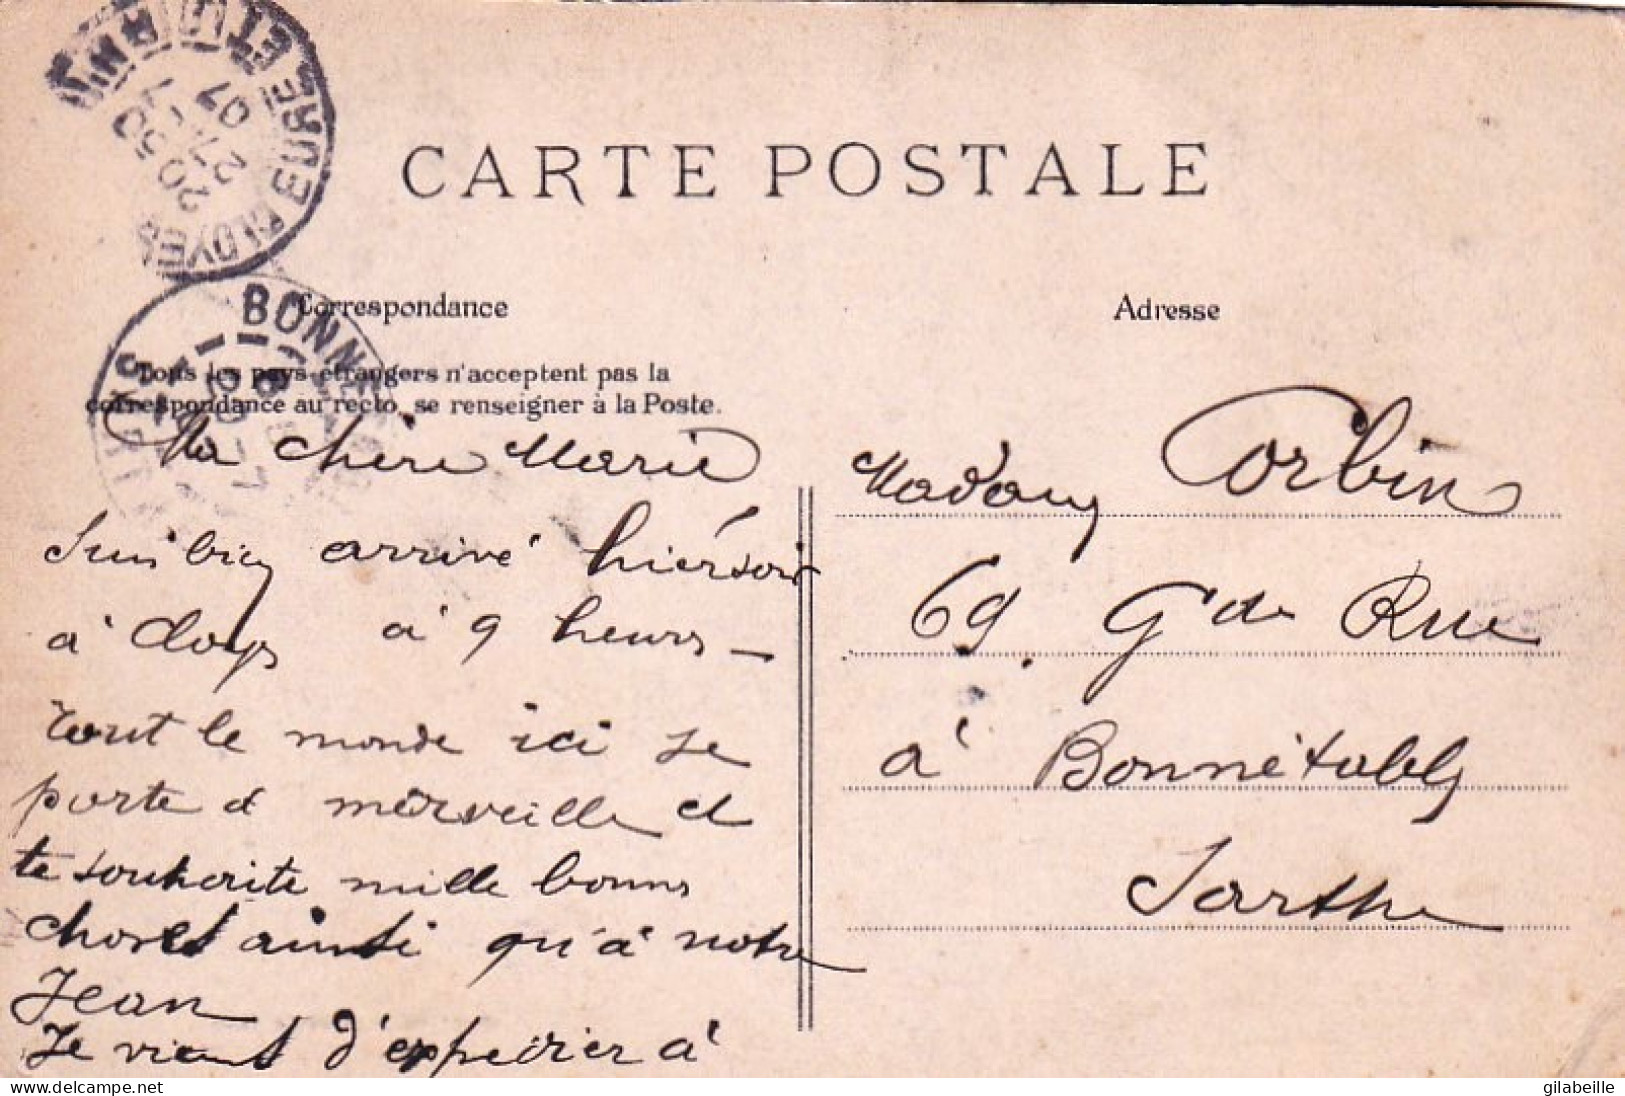 CARTE POSTALE
Correspondance
Tous les pays étrangers n'acceptent pas la
correspondance au recto, se renseigner à la Poste.
Ma chère Marie
Suis bien arrivé hier soir
à Cloyes à 9 heures _
tout le monde ici se
porte à merveille et
te souhaite mille bonnes
choses ainsi qu'à notre
Jean
Je vient d'expedier à
Adresse
Madame Corbin
69. Gde Rue
à Bonnétable
Sarthe
CLOYES EURE ET
20 30
27 7
07
BONN
gilabeille